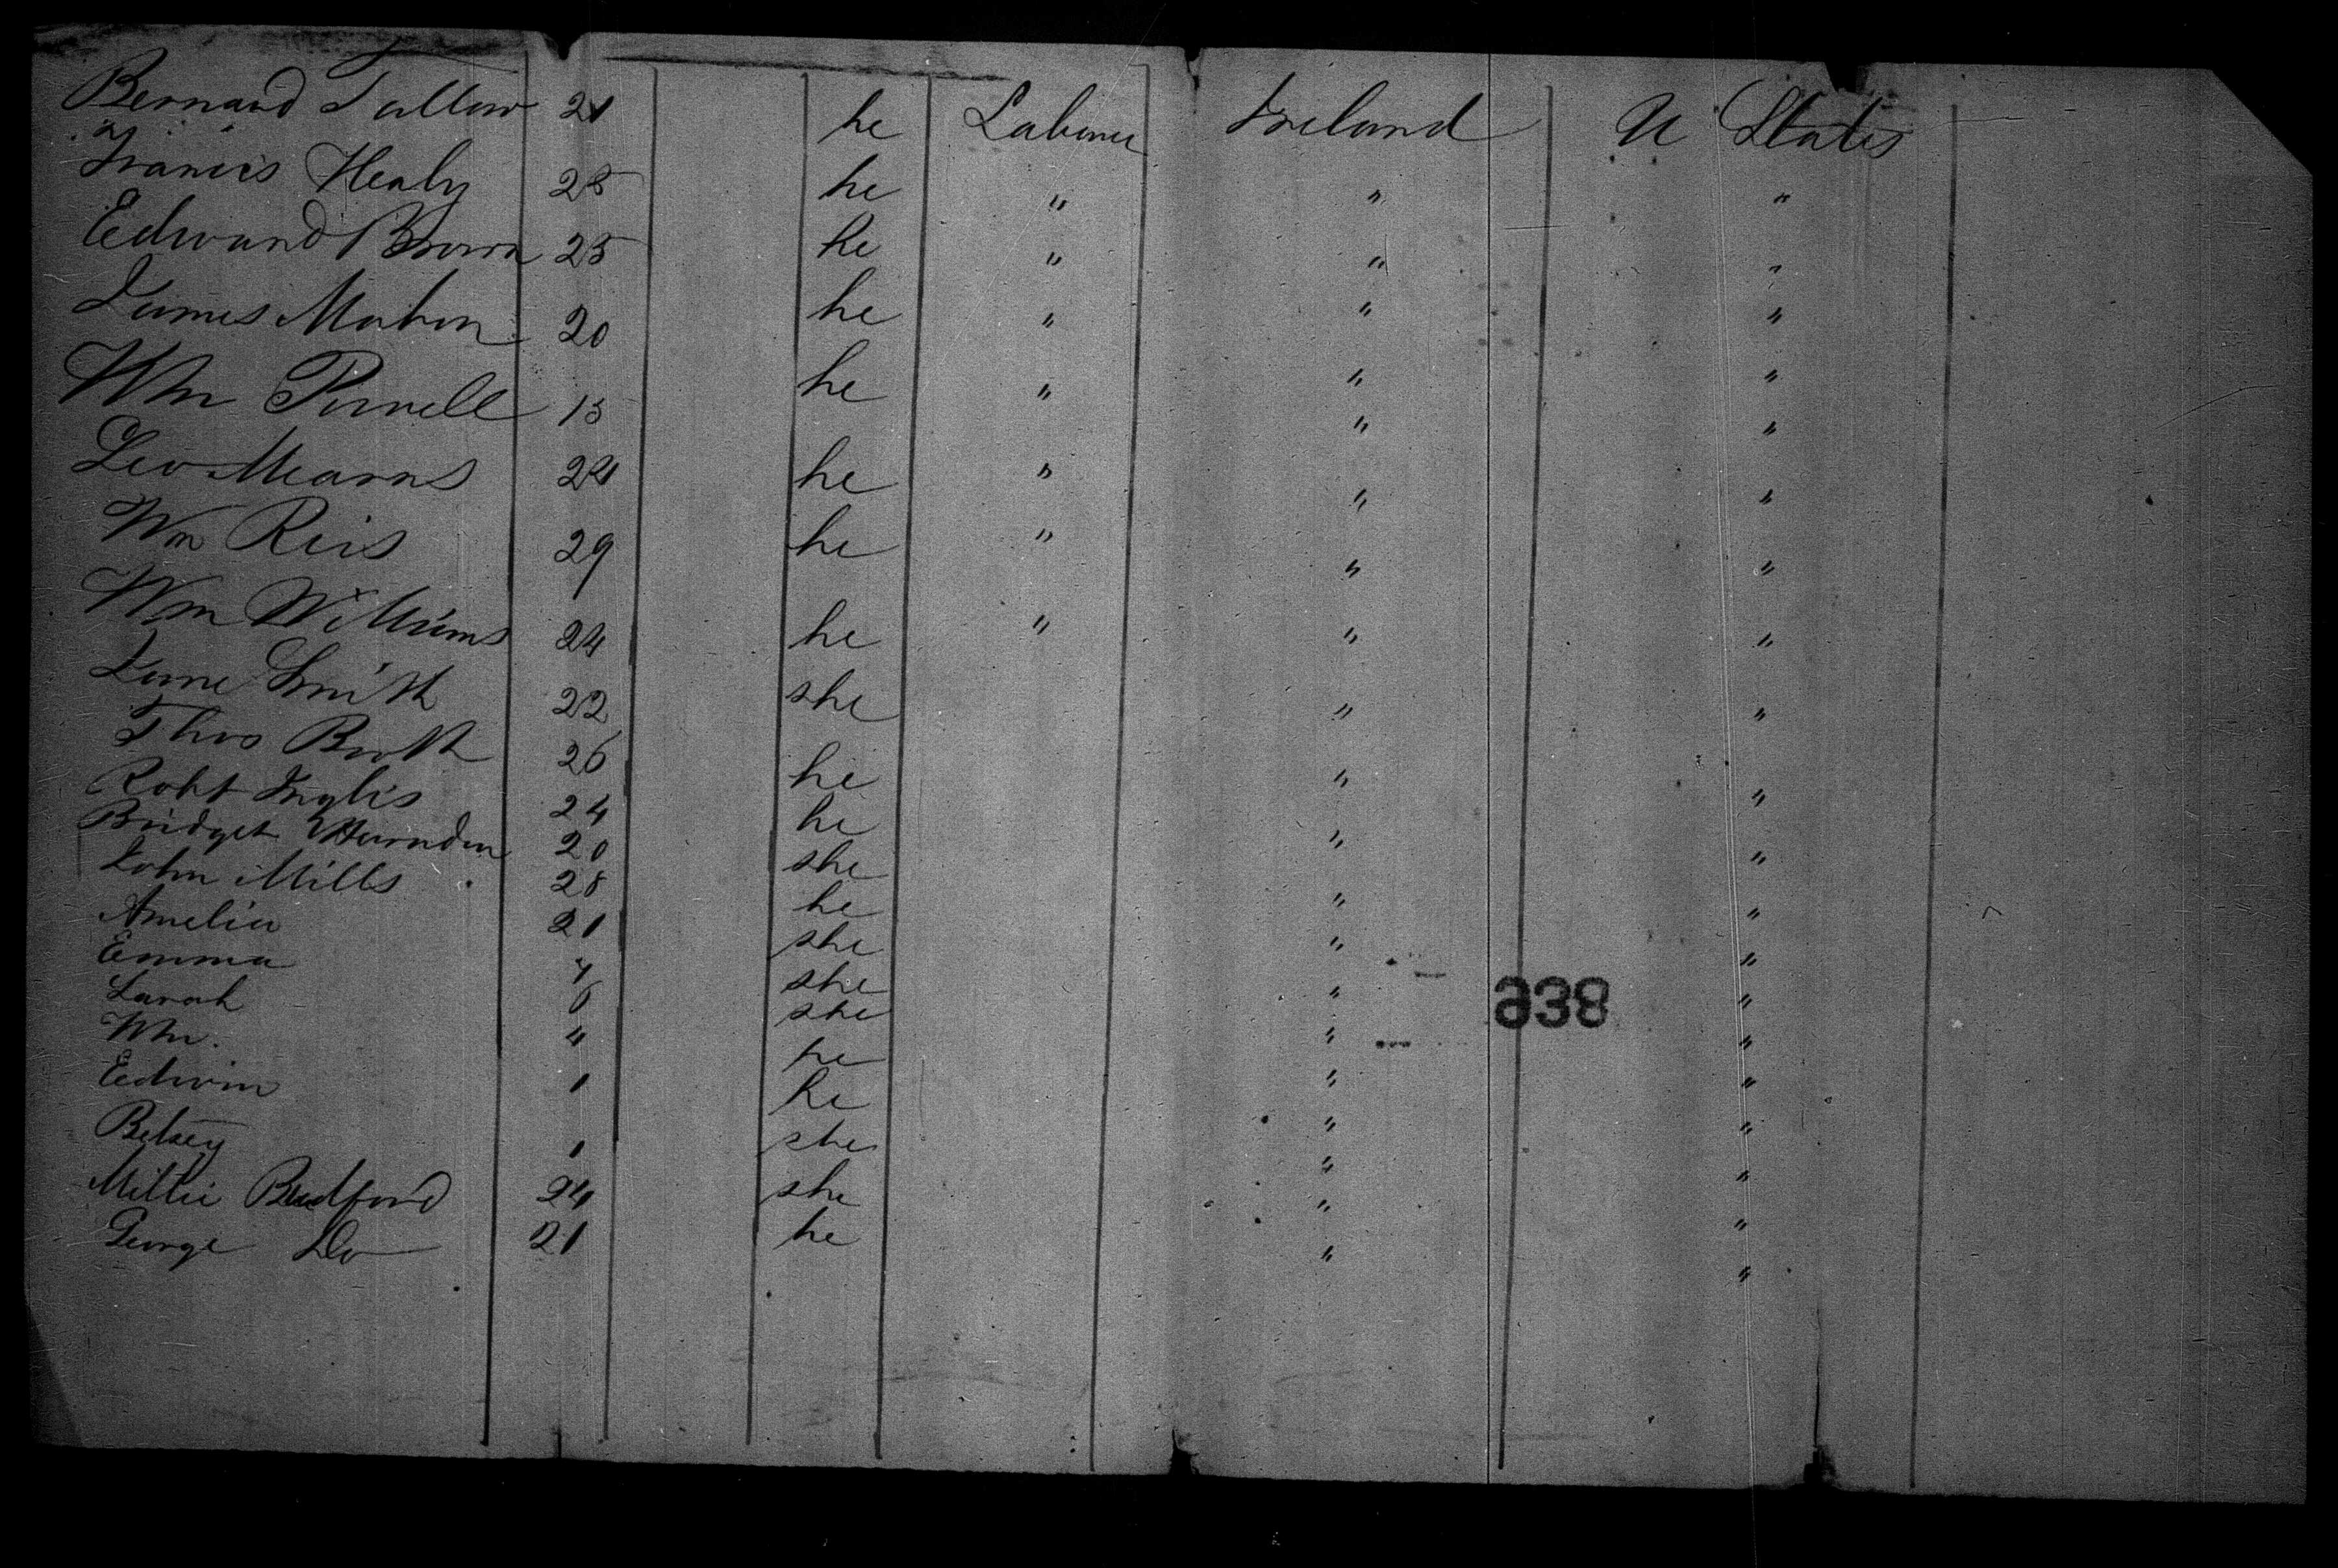 Bernard Fallow 21 he Laborer Ireland U States
Francis Healy 25 he " " "
Edward Brown 25 he " " "
James Mahon 20 he " " "
Wm Purnell 15 he " " "
Geo Mearns 24 he " " "
Wm Reis 29 he " " "
Wm Williams 24 he " " "
Jane Smith 22 she " "
Thos Booth 26 he " "
Robt Inglis 24 he " "
Bridget 20 she " "
John Mills 28 he " "
Amelia 21 she " "
Emma she " "
Sarah 6 she " "
Wm. " he " "
Edwin 1 he " "
Betsey 1 she " "
Millie Bedford 24 she " "
George Do 21 he " "
938